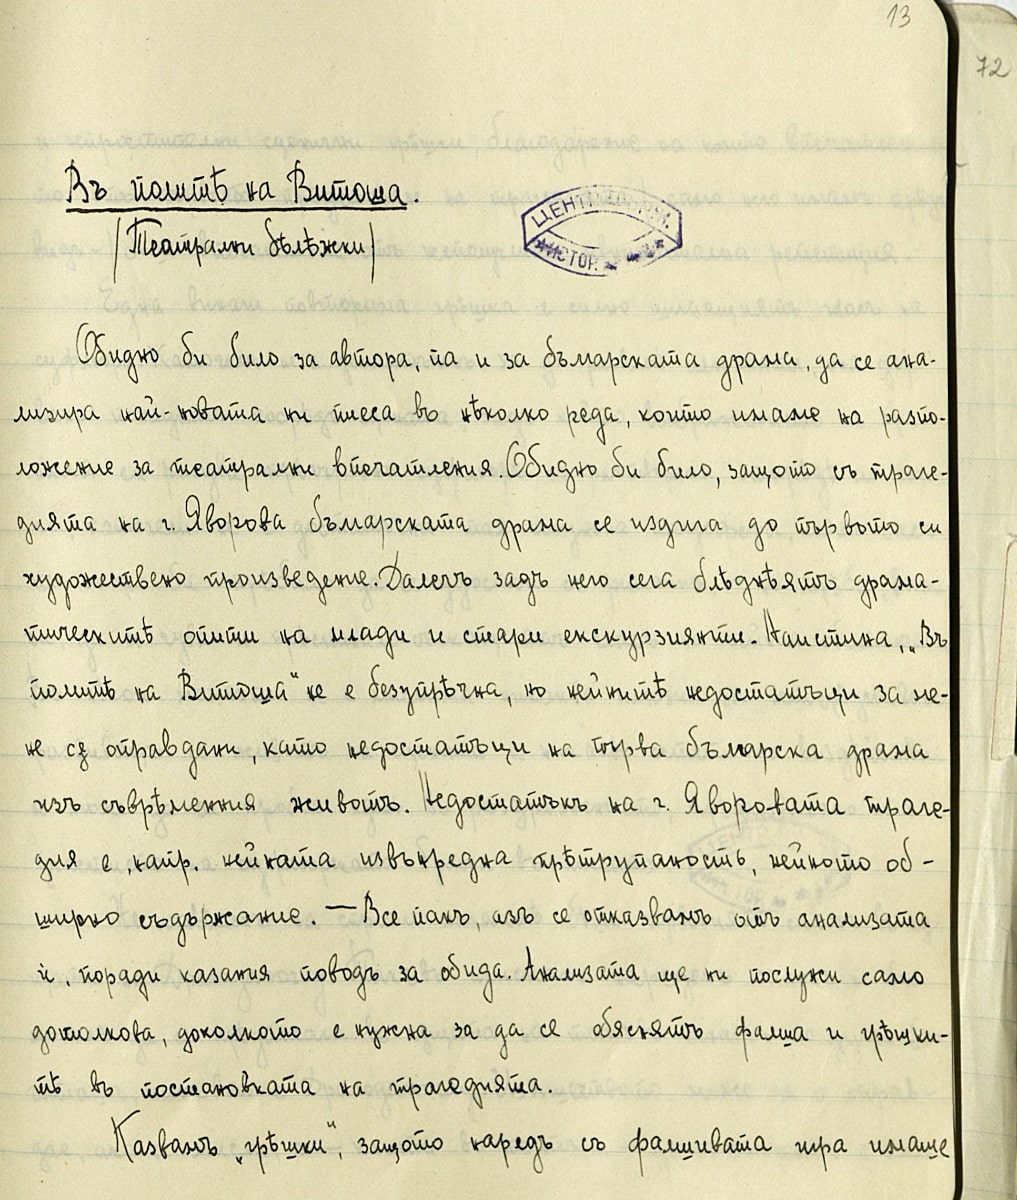 13
72
Въ политѣ на Витоша.
/Театрални бѣлѣжки/
ЦЕНТ
ИСТОР.
Обидно би било за автора, па и за българската драма, да се ана-
лизира най-новата ни пиеса въ нѣколко реда, които имаме на разпо-
ложение за театрални впечатления. Обидно би било, защото съ траге-
дията на г. Яворова българската драма се издига до първото си
художествено произведение. Далечъ задъ него сега блѣднѣятъ драма-
тическитѣ опити на млади и стари екскурзиянти. Наистина, „Въ
политѣ на Витоша" не е безупрѣчна, но нейнитѣ недостатъци за ме-
не сѫ оправдани, като недостатъци на първа българска драма
изъ съврѣменния животъ. Недостатъкъ на г. Яворовата траге-
дия е, напр. нейната извънредна прѣтрупаность, нейното об-
ширно съдържание. — Все пакъ, азъ се отказвамъ отъ анализата
ѝ, поради казания поводъ за обида. Анализата ще ни послужи само
дотолкова, доколкото е нужна за да се обяснятъ фалша и грѣшки-
тѣ въ постановката на трагедията.
Казвамъ „грѣшки", защото наредъ съ фалшивата игра имаше